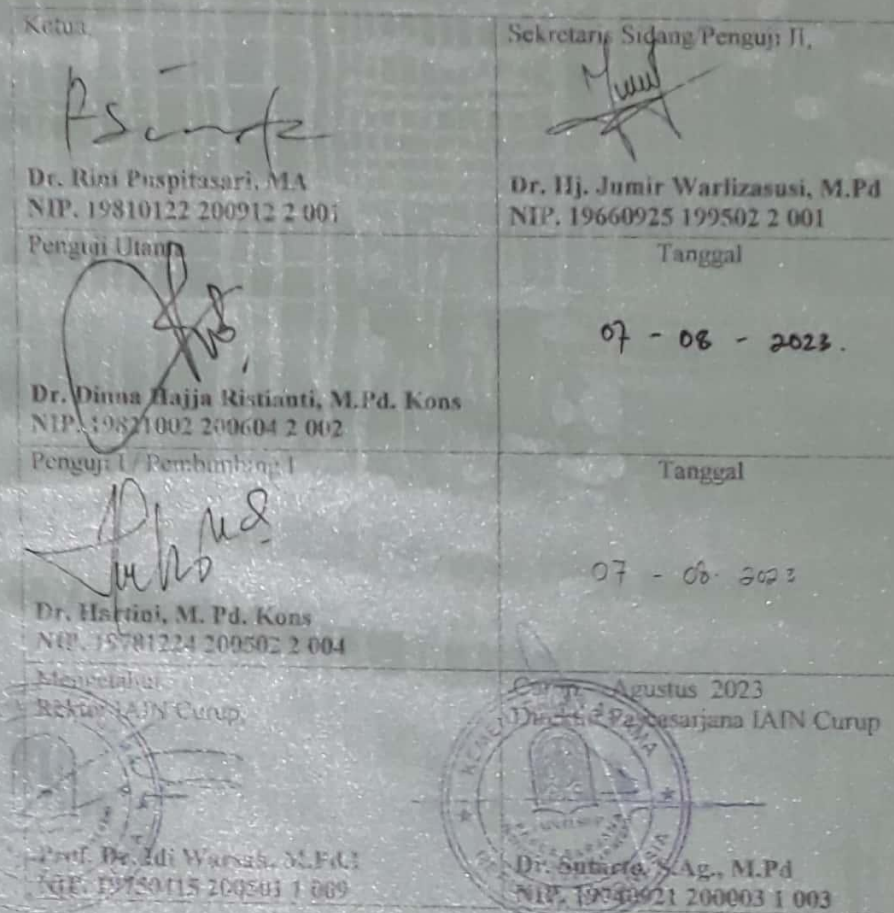 Ketua,
Dr. Rini Puspitasari, MA
NIP. 19810122 200912 2 001
Sekretaris Sidang/Penguji II,
Dr. Hj. Jumir Warlizasusi, M.Pd
NIP. 19660925 199502 2 001
Penguji Utama
Dr. Dinna Hajja Ristianti, M.Pd. Kons
NIP. 19821002 200604 2 002
Tanggal
07 - 08 - 2023.
Penguji I / Pembimbing I
Dr. Hartini, M. Pd. Kons
NIP. 19781224 200502 2 004
Tanggal
07 - 08 - 2023
Mengetahui
Rektor IAIN Curup,
Prof. Dr. Idi Warsah, M.Pd.I
NIP. 19750415 200501 1 009
Curup, Agustus 2023
Direktur Pascasarjana IAIN Curup
Dr. Sutarto, S.Ag., M.Pd
NIP. 19740921 200003 1 003